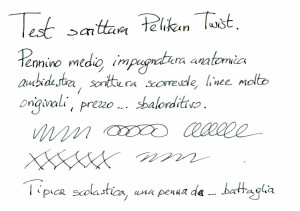 Test scrittura Pelikan Twist.
Pennino medio, impugnatura anatomica
ambidestra, scrittura scorrevole, linee molto
originali, prezzo... sbalorditivo.
Tipica scolastica, una penna da... battaglia